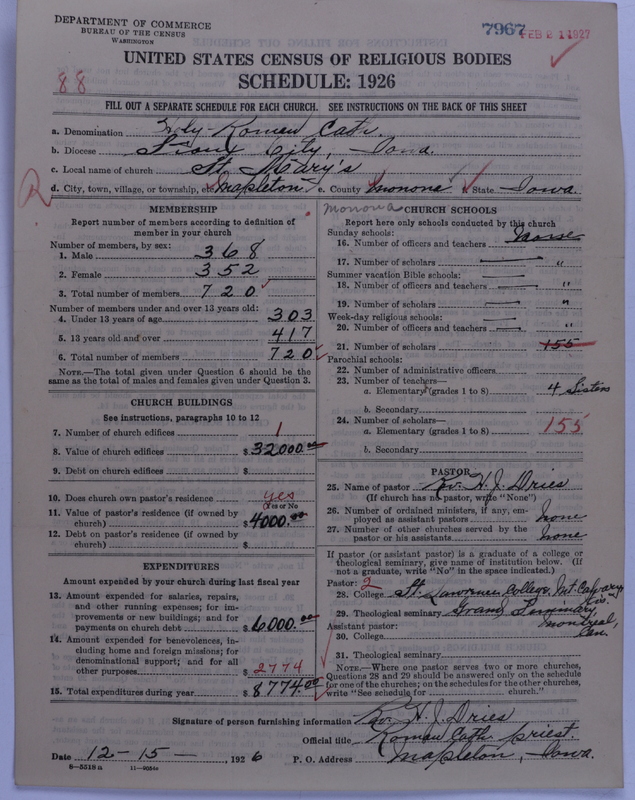 DEPARTMENT OF COMMERCE
BUREAU OF THE CENSUS
WASHINGTON
7967 FEB 21 1927
UNITED STATES CENSUS OF RELIGIOUS BODIES
SCHEDULE: 1926
88
FILL OUT A SEPARATE SCHEDULE FOR EACH CHURCH. SEE INSTRUCTIONS ON THE BACK OF THIS SHEET
a. Denomination Holy Roman Cath.
b. Diocese Sioux City, Iowa.
c. Local name of church St. Mary's
d. City, town, village, or township, Mapleton e. County Monona State Iowa.
Monona
MEMBERSHIP
Report number of members according to definition of member in your church
Number of members, by sex:
1. Male 368
2. Female 352
3. Total number of members 720
Number of members under and over 13 years old:
4. Under 13 years of age 303
5. 13 years old and over 417
6. Total number of members 720
NOTE.—The total given under Question 6 should be
same as the total of males and females given under Question 3.
CHURCH BUILDINGS
See instructions, paragraphs 10 to 12
7. Number of church edifices 1
8. Value of church edifices $32,000.00
9. Debt on church edifices $
10. Does church own pastor's residence yes
Yes or No
11. Value of pastor's residence (if owned by
church) $4000.00
12. Debt on pastor's residence (if owned by
church) $
EXPENDITURES
Amount expended by your church during last fiscal year
13. Amount expended for salaries, repairs,
and other running expenses; for im-
provements or new buildings; and for
payments on church debt $6,000.00
14. Amount expended for benevolences, in-
cluding home and foreign missions; for
denominational support; and for all
other purposes $2774
15. Total expenditures during year $8774.00
CHURCH SCHOOLS
Report here only schools conducted by this church
Sunday schools:
16. Number of officers and teachers None
17. Number of scholars "
Summer vacation Bible schools:
18. Number of officers and teachers "
19. Number of scholars "
Week-day religious schools:
20. Number of officers and teachers "
21. Number of scholars 155
Parochial schools:
22. Number of administrative officers
23. Number of teachers—
a. Elementary (grades 1 to 8) 4 Sisters
b. Secondary
24. Number of scholars—
a. Elementary (grades 1 to 8) 155
b. Secondary
PASTOR
25. Name of pastor Rev. H. J. Dries
(If church has no pastor, write "None")
26. Number of ordained ministers, if any, em-
ployed as assistant pastors none
27. Number of other churches served by the
pastor or his assistants none
If pastor (or assistant pastor) is a graduate of a college or
theological seminary, give name of institution below. (If
not a graduate, write "No" in the space indicated.)
Pastor: 2
28. College St. Lawrence College, Mt. Calvary, Wis.
29. Theological seminary Grand Seminary,
Montreal, Can.
Assistant pastor:
30. College
31. Theological seminary
NOTE.—Where one pastor serves two or more churches,
Questions 28 and 29 should be answered only on the schedule
for one of the churches; on the schedules for the other churches,
write "See schedule for church."
Signature of person furnishing information Rev. H. J. Dries
Official title Roman Cath. priest
Date 12-15-, 1926 P. O. Address Mapleton, Iowa.
8—5518a 11—9554